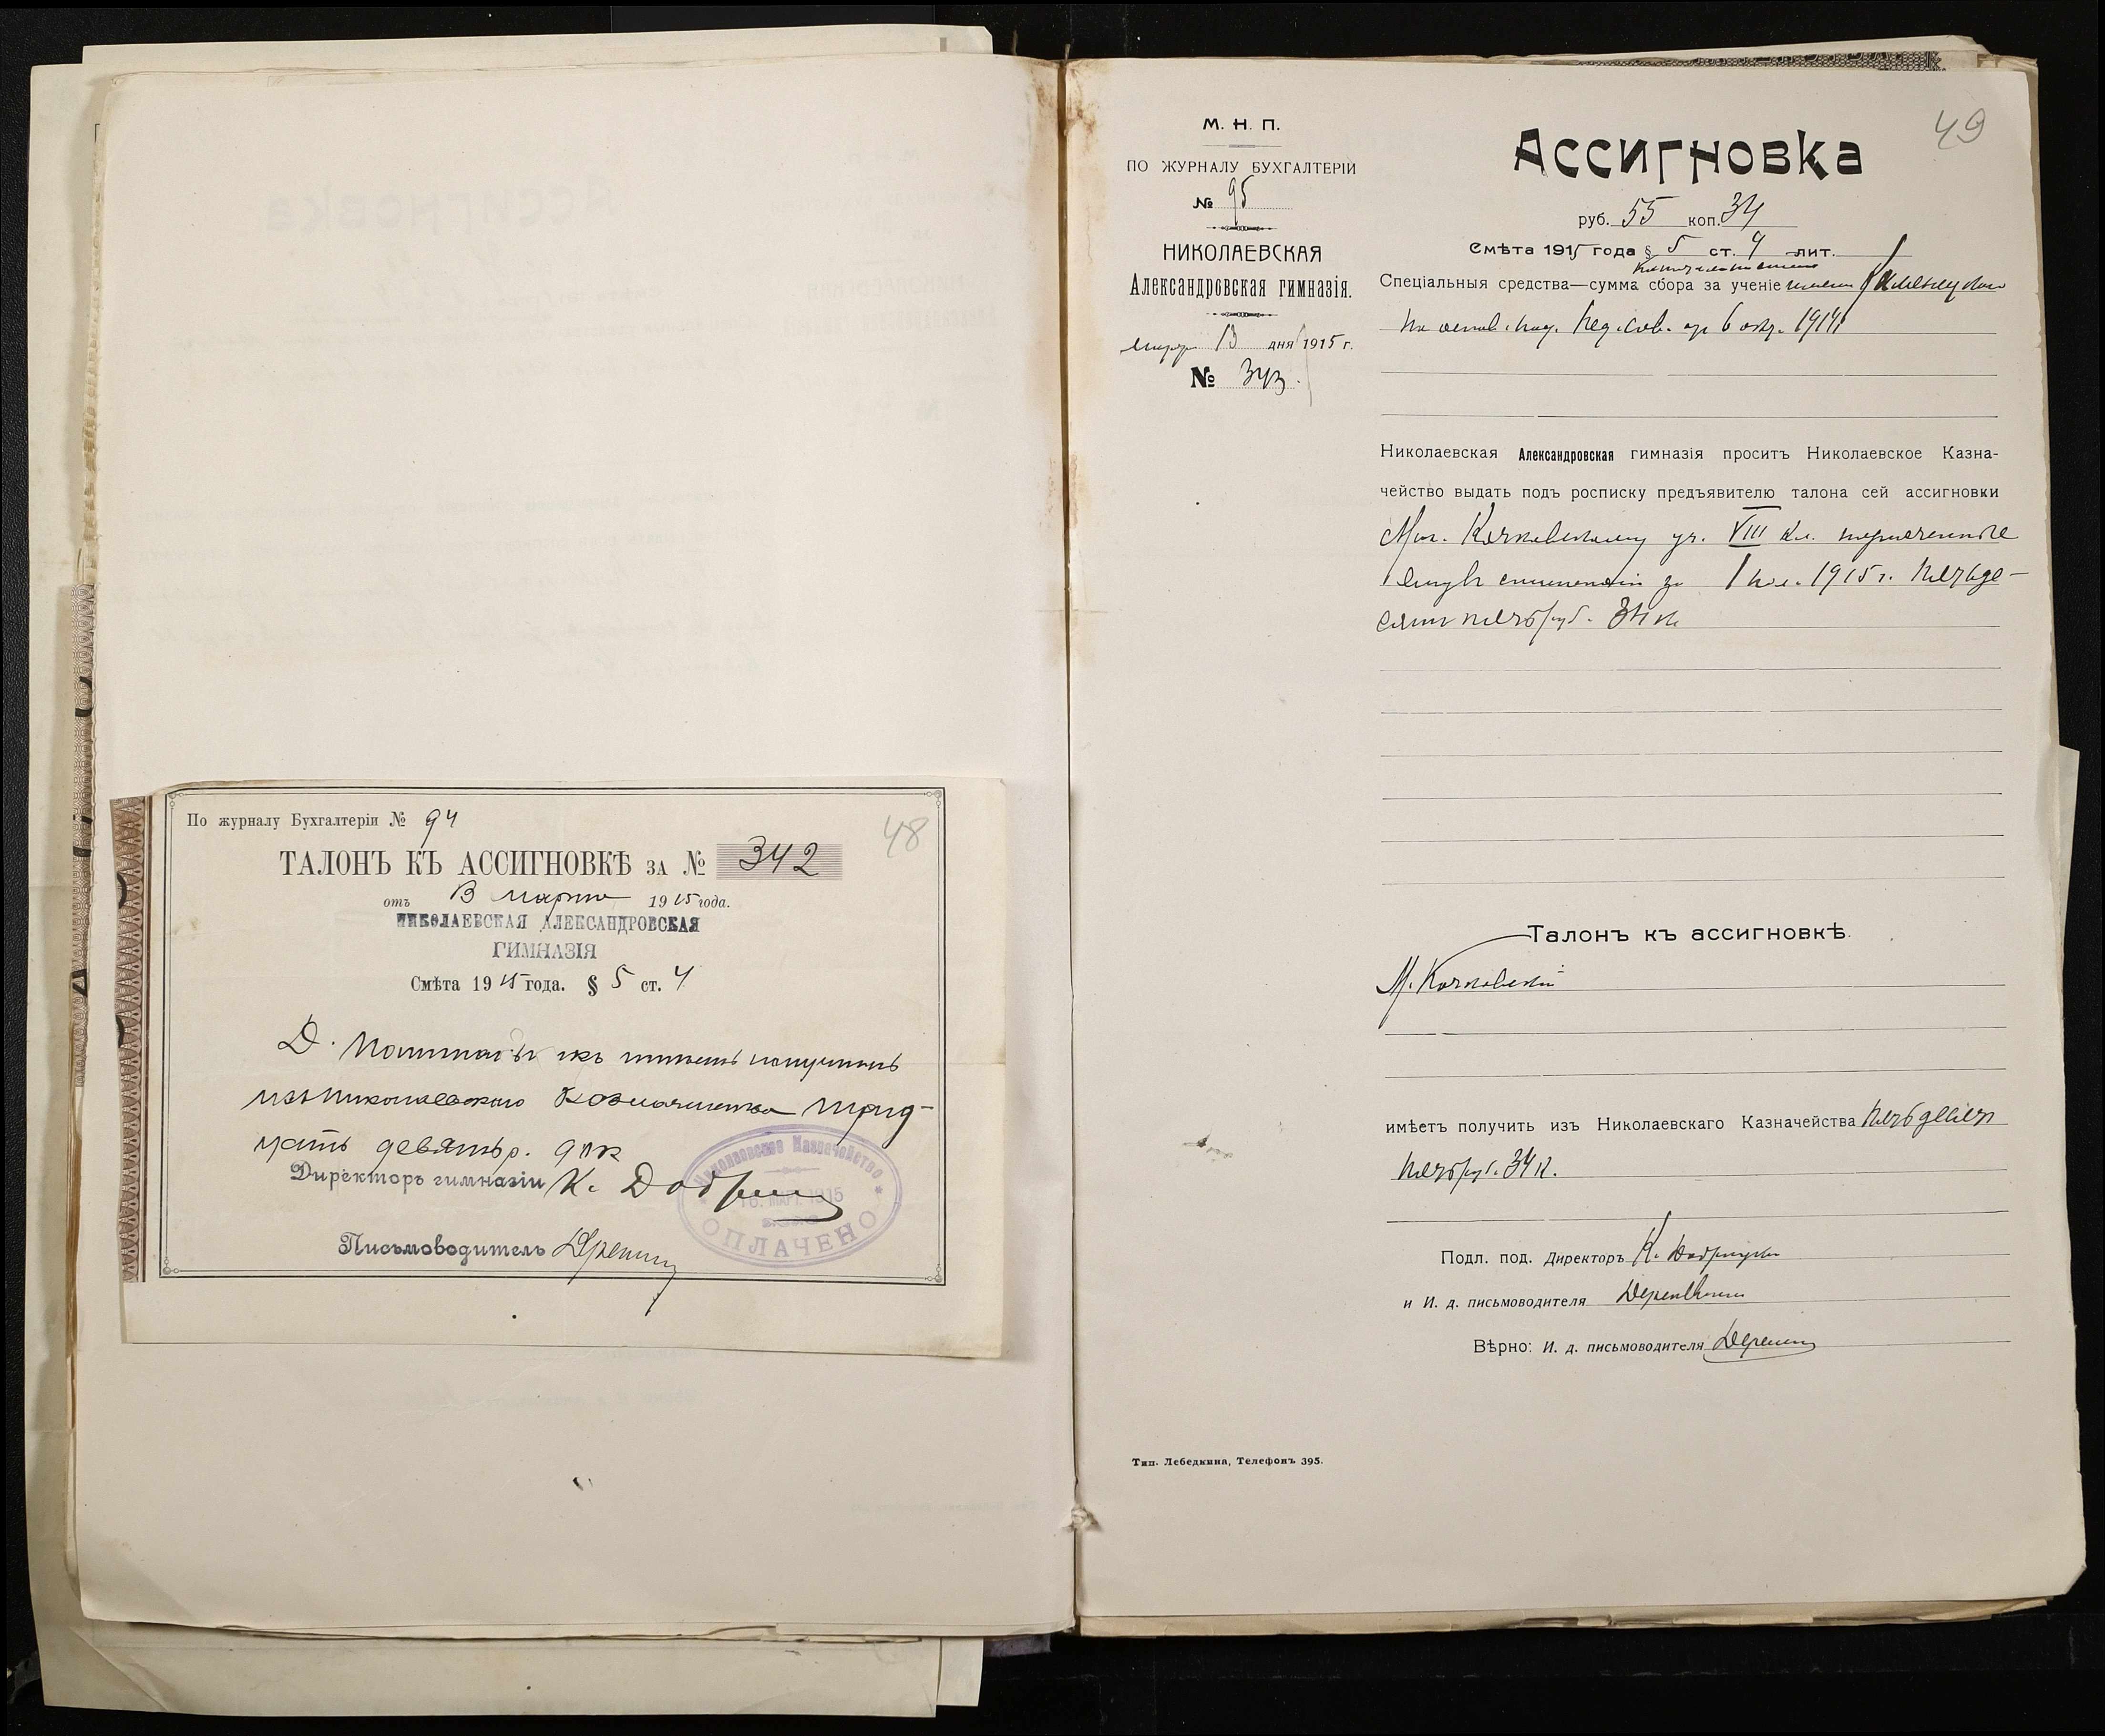 По журналу Бухгалтеріи № 94
48
ТАЛОНЪ КЪ АССИГНОВКѢ ЗА № 342
отъ 13 марта 1915 года.
НИКОЛАЕВСКАЯ АЛЕКСАНДРОВСКАЯ
ГИМНАЗІЯ
Смѣта 1915 года. § 5 ст. 4
Д. имѣетъ получить
изъ Николаевскаго Казначейства трид-
цать девять р. 91 к
Директоръ гимназіи К. Добр
Николаевское Казначейство
16. МАР. 1915
ОПЛАЧЕНО
Письмоводитель
М. Н. П.
ПО ЖУРНАЛУ БУХГАЛТЕРІИ
№ 95
НИКОЛАЕВСКАЯ
Александровская гимназія.
марта 13 дня 1915 г.
№ 343.
49
Ассигновка
руб. 55 коп. 34
Смѣта 1915 года § 5 ст. 4 лит.
Спеціальныя средства—сумма сбора за ученіе имени
На основ. Пед. Сов. от 6 окт. 1914
Николаевская Александровская гимназія проситъ Николаевское Казна-
чейство выдать подъ росписку предъявителю талона сей ассигновки
Мих. Качковскому уч. VIII кл. назначенные
ему стипендіи за 1 пол. 1915 г. пятьде-
сятъ пять руб. 34 к
Талонъ къ ассигновкѣ.
М. Качковскій
имѣетъ получить изъ Николаевскаго Казначейства пятьдесят
пять руб. 34 к.
Подл. под. Директоръ К.
и И. д. письмоводителя
Вѣрно: И. д. письмоводителя
Тип. Лебедкина, Телефонъ 395.